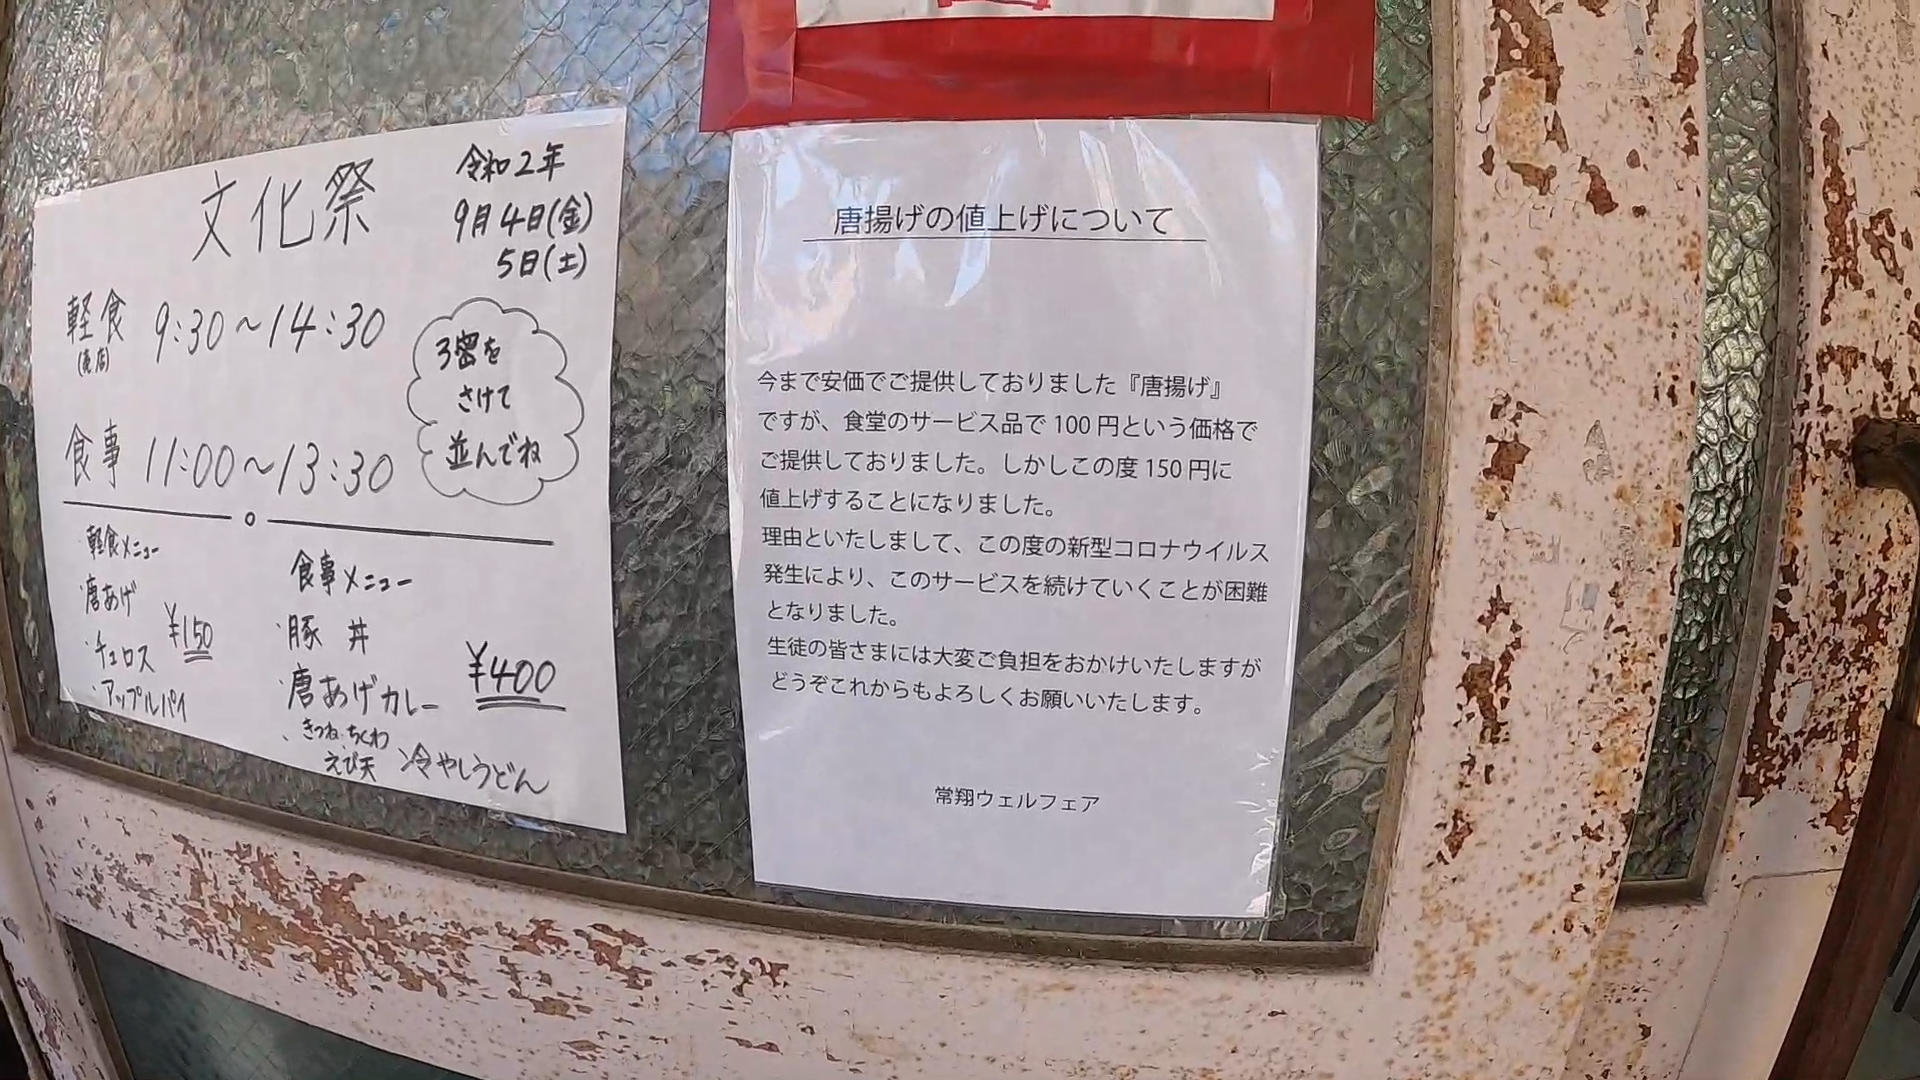 文化祭
令和2年
9月4日(金)
5日(土)
軽食 9:30～14:30
(売店)
食事 11:00～13:30
3密を
さけて
並んでね
軽食メニュー
・唐あげ
・チュロス
・アップルパイ
¥150
食事メニュー
・豚丼
・唐あげカレー
・きつね・ちくわ
えび天 冷やしうどん
¥400
唐揚げの値上げについて
今まで安価でご提供しておりました『唐揚げ』
ですが、食堂のサービス品で100円という価格で
ご提供しておりました。しかしこの度150円に
値上げすることになりました。
理由といたしまして、この度の新型コロナウイルス
発生により、このサービスを続けていくことが困難
となりました。
生徒の皆さまには大変ご負担をおかけいたしますが
どうぞこれからもよろしくお願いいたします。
常翔ウェルフェア